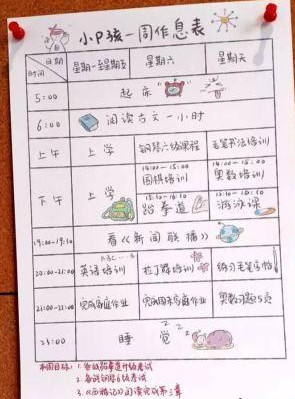 小P孩一周作息表
日期 时间 星期一至星期五 星期六 星期天
5:00 起床
6:00 阅读古文一小时
上午 上学 钢琴六级课程 毛笔书法培训
下午 上学 14:00-15:00 围棋培训 14:00-15:00 奥数培训
跆拳道 游泳课
19:00-19:30 看《新闻联播》
20:00-21:00 英语培训 拉丁舞培训 练习毛笔字帖
21:00-22:00 完成家庭作业 完成周末家庭作业 奥数习题5页
23:00 睡觉 zzz
本周目标: 1. 备战跆拳道升级考试
2. 备战钢琴6级考试
3. 《西游记》阅读完成第三章